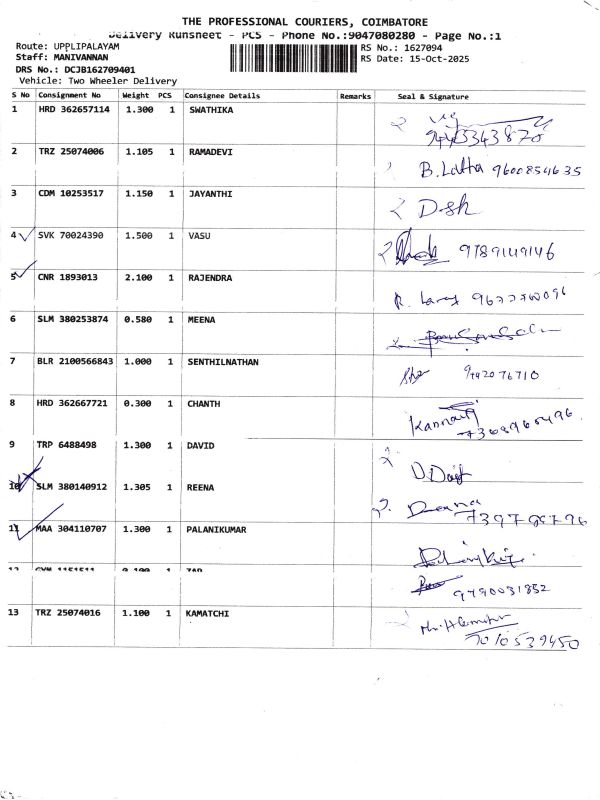 THE PROFESSIONAL COURIERS, COIMBATORE
Delivery Runsheet - PCS - Phone No.:9047080280 - Page No.:1
Route: UPPLIPALAYAM
RS No.: 1627094
Staff: MANIVANNAN
RS Date: 15-Oct-2025
DRS No.: DCJB162709401
Vehicle: Two Wheeler Delivery
S No Consignment No Weight PCS Consignee Details Remarks Seal & Signature
1 HRD 362657114 1.300 1 SWATHIKA
2 TRZ 25074006 1.105 1 RAMADEVI B. Latha 9600854635
3 CDM 10253517 1.150 1 JAYANTHI
4 SVK 70024390 1.500 1 VASU 9789149146
5 CNR 1893013 2.100 1 RAJENDRA
6 SLM 380253874 0.580 1 MEENA
7 BLR 2100566843 1.000 1 SENTHILNATHAN 9942076710
8 HRD 362667721 0.300 1 CHANTH
9 TRP 6488498 1.300 1 DAVID
10 SLM 380140912 1.305 1 REENA
11 MAA 304110707 1.300 1 PALANIKUMAR
12 1 9790031852
13 TRZ 25074016 1.100 1 KAMATCHI 7010539450